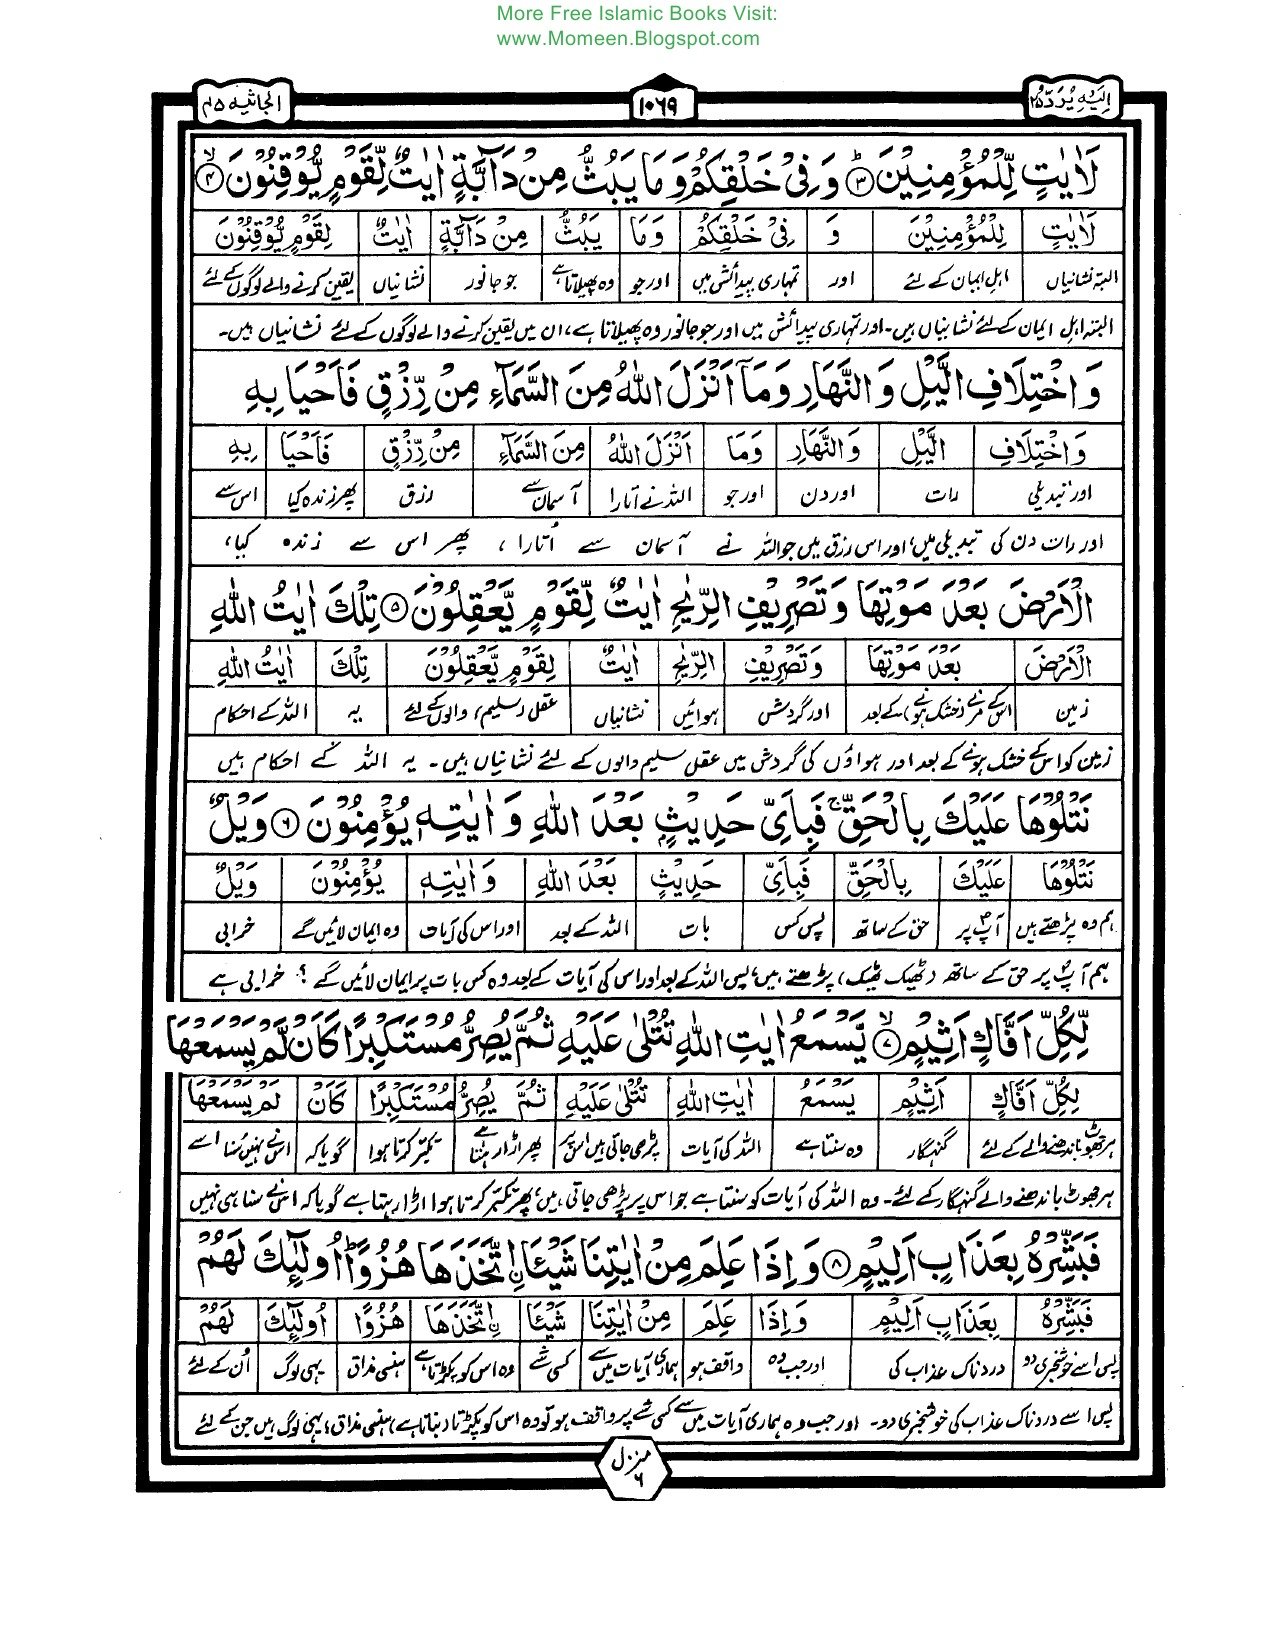 More Free Islamic Books Visit:
www.Momeen.Blogspot.com
اِلَیْهِ یُرَدُّ ۲۵
۱۰۶۹
الجاثیه ۴۵
لَاٰیٰتٍ لِّلْمُؤْمِنِیْنَ ۳ وَ فِیْ خَلْقِكُمْ وَ مَا یَبُثُّ مِنْ دَآبَّةٍ اٰیٰتٌ لِّقَوْمٍ یُّوْقِنُوْنَ ۴
لَاٰیٰتٍ لِلْمُؤْمِنِیْنَ وَ فِیْ خَلْقِكُمْ وَمَا یَبُثُّ مِنْ دَآبَّةٍ اٰیٰتٌ لِقَوْمٍ یُّوْقِنُوْنَ
البتہ نشانیاں اہلِ ایمان کے لئے اور تمہاری پیدائش میں اور جو وہ پھیلاتا ہے جو جانور نشانیاں یقین کرنے والے لوگوں کے لئے
البتہ اہل ایمان کے لئے نشانیاں ہیں۔ اور تمہاری پیدائش میں اور جو جانور وہ پھیلاتا ہے، ان میں یقین کرنے والے لوگوں کے لئے نشانیاں ہیں۔
وَ اخْتِلَافِ الَّیْلِ وَ النَّهَارِ وَ مَاۤ اَنْزَلَ اللّٰهُ مِنَ السَّمَآءِ مِنْ رِّزْقٍ فَاَحْیَا بِهِ
وَ اخْتِلَافِ الَّیْلِ وَ النَّهَارِ وَمَا اَنْزَلَ اللّٰهُ مِنَ السَّمَآءِ مِنْ رِّزْقٍ فَاَحْیَا بِهِ
اور تبدیلی رات اور دن اور جو اللہ نے اتارا آسمان سے رزق پھر زندہ کیا اس سے
اور رات دن کی تبدیلی میں، اور اس رزق میں جو اللہ نے آسمان سے اُتارا، پھر اس سے زندہ کیا،
الْاَرْضَ بَعْدَ مَوْتِهَا وَ تَصْرِیْفِ الرِّیٰحِ اٰیٰتٌ لِّقَوْمٍ یَّعْقِلُوْنَ ۵ تِلْكَ اٰیٰتُ اللّٰهِ
الْاَرْضَ بَعْدَ مَوْتِهَا وَ تَصْرِیْفِ الرِّیٰحِ اٰیٰتٌ لِقَوْمٍ یَّعْقِلُوْنَ تِلْكَ اٰیٰتُ اللّٰهِ
زمین اس کے مرنے (خشک ہونے) کے بعد اور گردش ہوائیں نشانیاں عقل (سلیم) والوں کے لئے یہ اللہ کے احکام
زمین کو اس کے خشک ہونے کے بعد اور ہواؤں کی گردش میں عقل سلیم والوں کے لئے نشانیاں ہیں۔ یہ اللہ کے احکام ہیں
نَتْلُوْهَا عَلَیْكَ بِالْحَقِّ ج فَبِاَیِّ حَدِیْثٍ بَعْدَ اللّٰهِ وَ اٰیٰتِهٖ یُؤْمِنُوْنَ ۶ وَیْلٌ
نَتْلُوْهَا عَلَیْكَ بِالْحَقِّ فَبِاَیِّ حَدِیْثٍ بَعْدَ اللّٰهِ وَ اٰیٰتِهٖ یُؤْمِنُوْنَ وَیْلٌ
ہم وہ پڑھتے ہیں آپؐ پر حق کے ساتھ پس کس بات اللہ کے بعد اور اس کی آیات وہ ایمان لائیں گے خرابی
ہم آپؐ پر حق کے ساتھ (ٹھیک ٹھیک) پڑھتے ہیں، پس اللہ کے بعد اور اس کی آیات کے بعد وہ کس بات پر ایمان لائیں گے؟ خرابی ہے
لِّكُلِّ اَفَّاكٍ اَثِیْمٍ ۷ یَّسْمَعُ اٰیٰتِ اللّٰهِ تُتْلٰی عَلَیْهِ ثُمَّ یُصِرُّ مُسْتَكْبِرًا كَاَنْ لَّمْ یَسْمَعْهَا
لِكُلِّ اَفَّاكٍ اَثِیْمٍ یَسْمَعُ اٰیٰتِ اللّٰهِ تُتْلٰی عَلَیْهِ ثُمَّ یُصِرُّ مُسْتَكْبِرًا كَاَنْ لَمْ یَسْمَعْهَا
ہر جھوٹ باندھنے والے کے لئے گنہگار وہ سنتا ہے اللہ کی آیات پڑھی جاتی ہیں اس پر پھر اڑا رہتا ہے تکبر کرتا ہوا گویا کہ اس نے نہیں سُنا اسے
ہر جھوٹ باندھنے والے گنہگار کے لئے۔ وہ اللہ کی آیات کو سنتا ہے جو اس پر پڑھی جاتی ہیں، پھر تکبر کرتا ہوا اڑا رہتا ہے گویا کہ اس نے سنا ہی نہیں
فَبَشِّرْهُ بِعَذَابٍ اَلِیْمٍ ۸ وَ اِذَا عَلِمَ مِنْ اٰیٰتِنَا شَیْـًٔا اِۨتَّخَذَهَا هُزُوًا ط اُولٰٓئِكَ لَهُمْ
فَبَشِّرْهُ بِعَذَابٍ اَلِیْمٍ وَ اِذَا عَلِمَ مِنْ اٰیٰتِنَا شَیْـًٔا اِۨتَّخَذَهَا هُزُوًا اُولٰٓئِكَ لَهُمْ
پس اسے خوشخبری دو دردناک عذاب کی اور جب وہ واقف ہو ہماری آیات میں سے کسی شے وہ اس کو پکڑتا ہے ہنسی مذاق یہی لوگ اُن کے لئے
پس اسے دردناک عذاب کی خوشخبری دو۔ اور جب وہ ہماری آیات میں سے کسی شے پر واقف ہو تو وہ اس کو پکڑتا (بناتا ہے) ہنسی مذاق، یہی لوگ ہیں جن کے لئے
منزل ۶